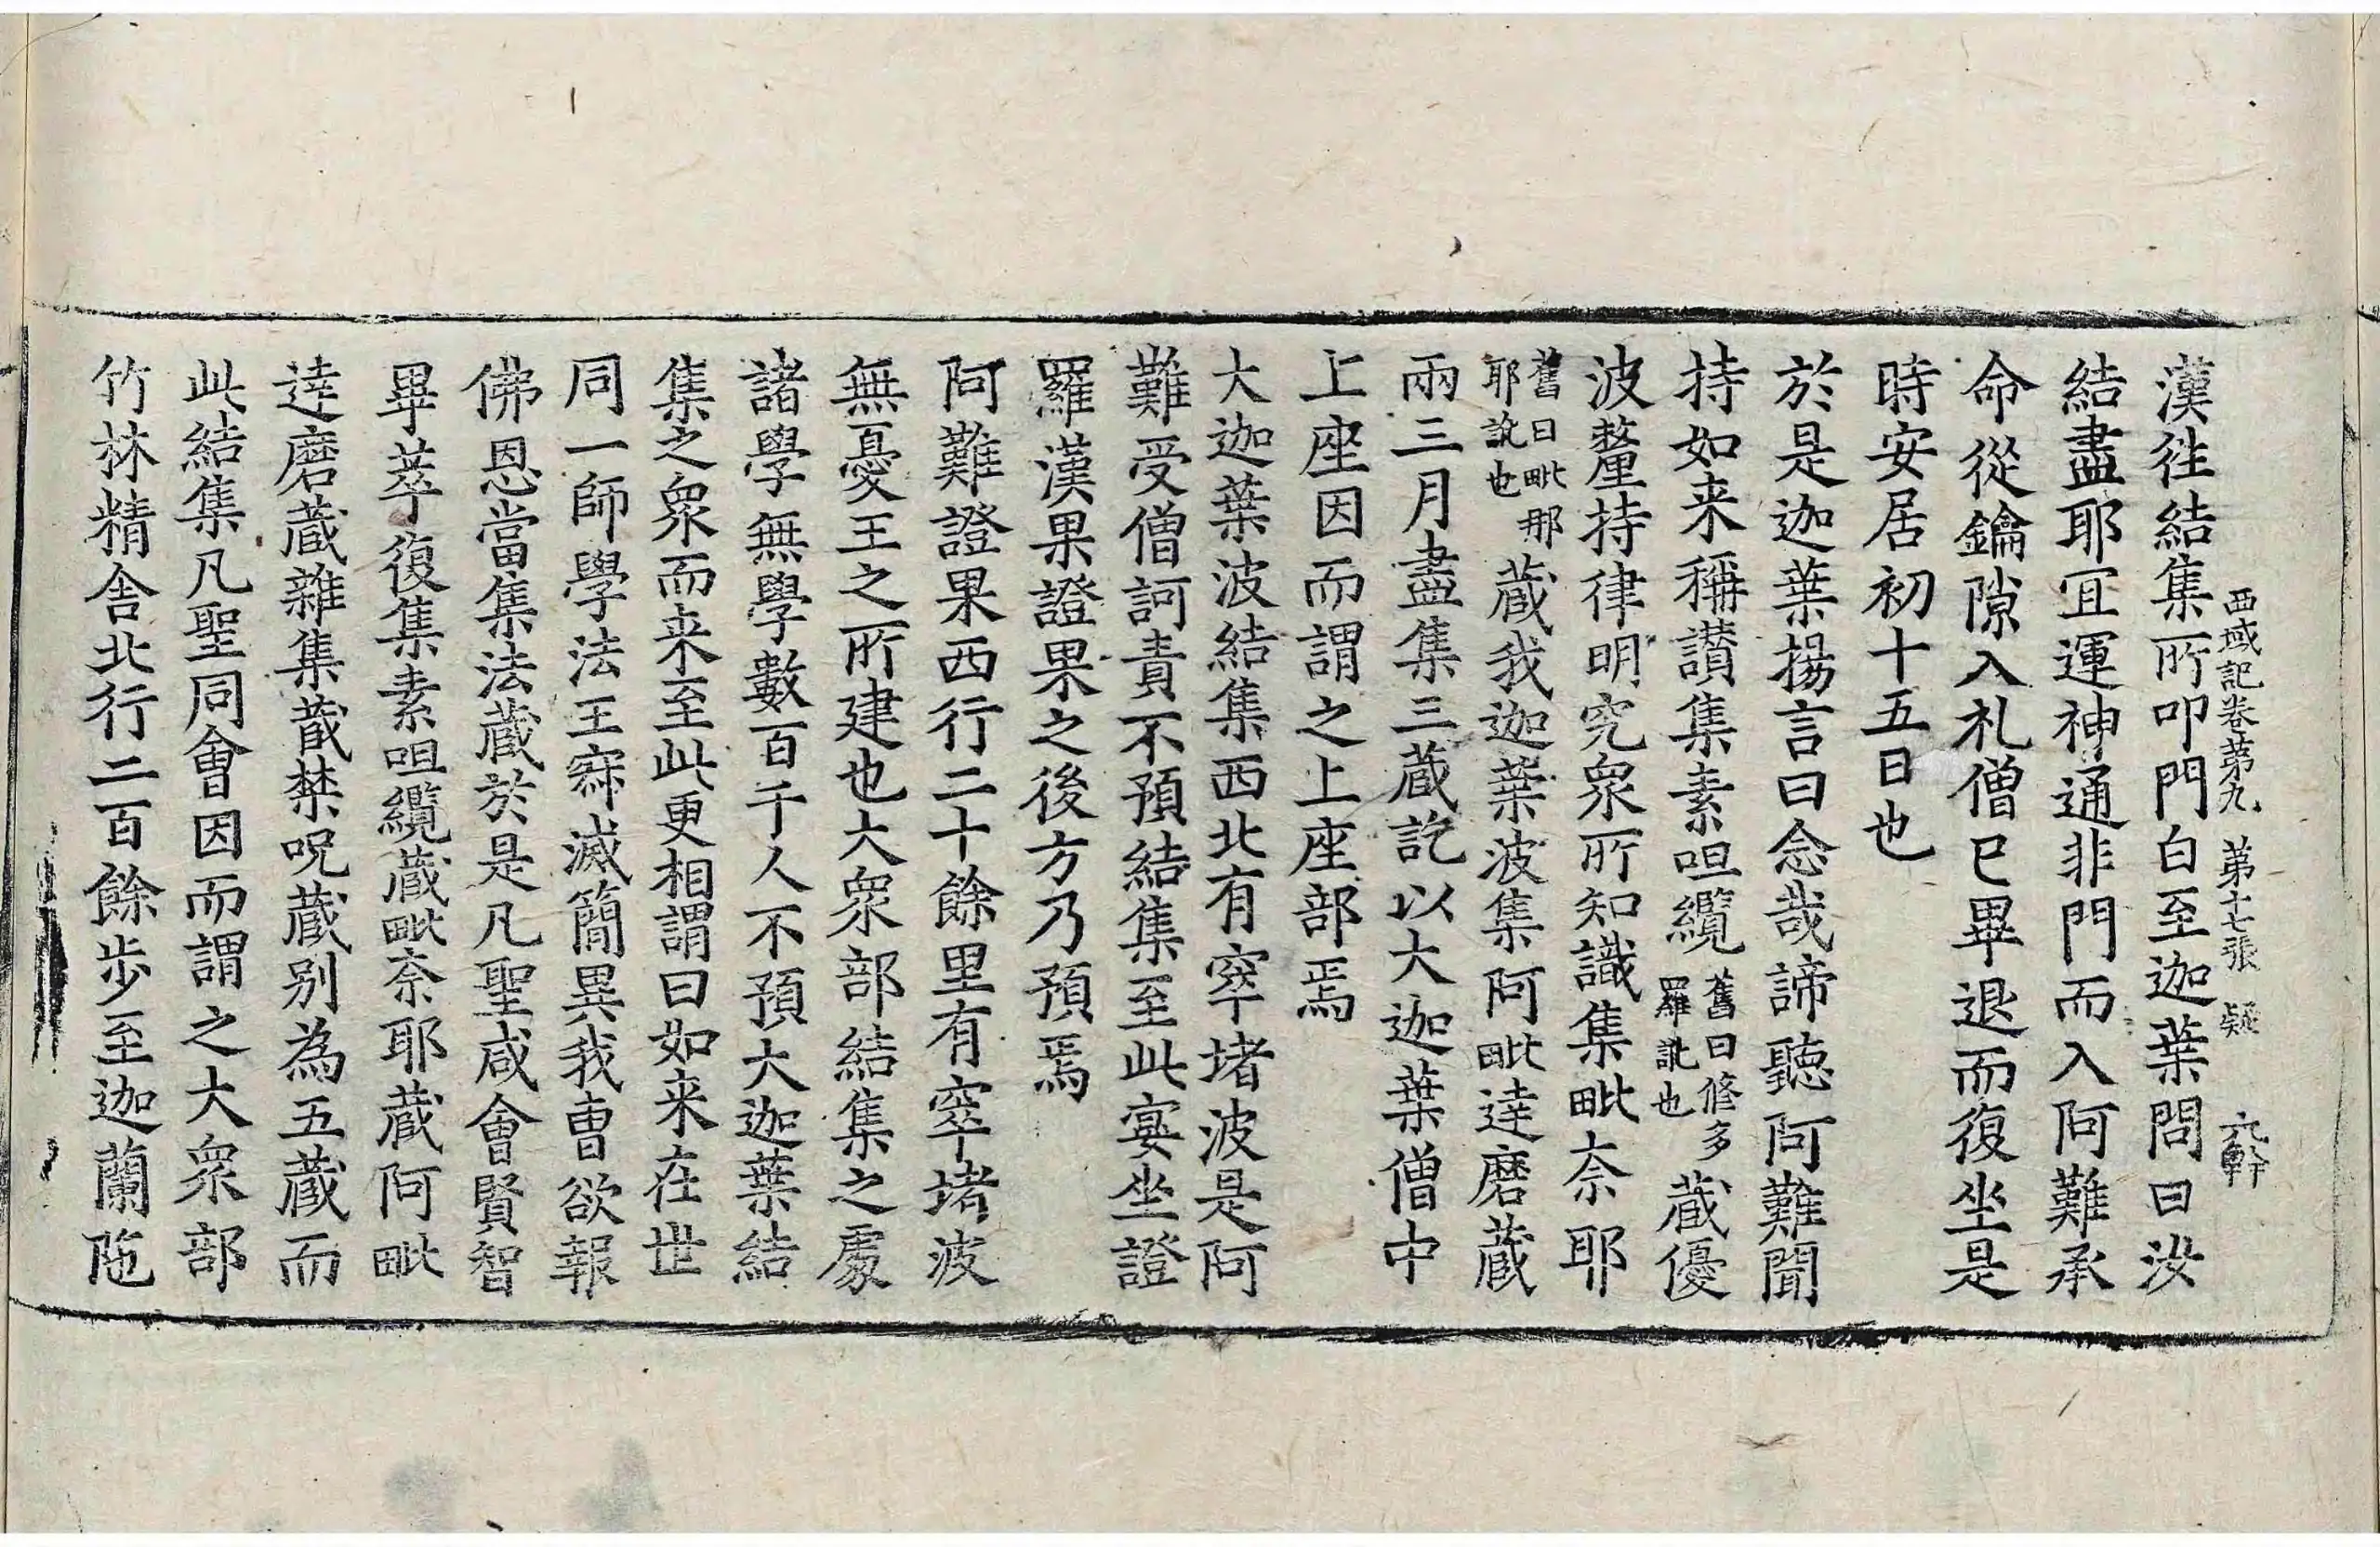 西域記卷第九 第十七張 疑
漢往結集所叩門白至迦葉問曰汝
結盡耶宜運神通非門而入阿難承
命從鑰隙入礼僧已畢退而復坐是
時安居初十五日也
於是迦葉揚言曰念哉諦聽阿難聞
持如来稱讃集素呾纜舊曰修多羅訛也蔵優
波釐持律明究衆所知識集毗柰耶
舊曰毗那耶訛也蔵我迦葉波集阿毗逹磨蔵
兩三月盡集三蔵訖以大迦葉僧中
上座因而謂之上座部焉
大迦葉波結集西北有窣堵波是阿
難受僧訶責不預結集至此宴坐證
羅漢果證果之後方乃預焉
阿難證果西行二十餘里有窣堵波
無憂王之所建也大衆部結集之處
諸學無學數百千人不預大迦葉結
集之衆而来至此更相謂曰如来在世
同一師學法王寂滅簡異我曹欲報
佛恩當集法蔵於是凡聖咸會賢智
畢萃復集素呾纜蔵毗柰耶蔵阿毗
逹磨蔵雜集蔵禁呪蔵别為五蔵而
此結集凡聖同會因而謂之大衆部
竹林精舎北行二百餘步至迦蘭陁